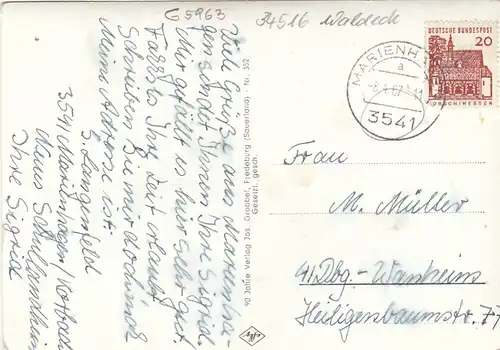 G 5963
34516 Waldeck
Viele Grüße aus Marienha-
gen sendet Ihnen Ihre Sigrid.
Mir gefällt es hier sehr gut.
Falls es Ihre Zeit erlaubt
Schreiben Sie mir doch mal
Meine Adresse ist:
S. Langenfeld
3541 Marienhagen/Korbach
Haus Schullandheim
Ihre Sigrid
90 Jahre Verlag Jos. Grobbel, Fredeburg (Sauerland) - Nr. 352
Gesetzl. gesch.
MARIENH
a
67
3541
DEUTSCHE BUNDESPOST
20
LORSCH/HESSEN
Frau
M. Müller
41 Dbg.-Wanheim
Heiligenbaumstr. 77